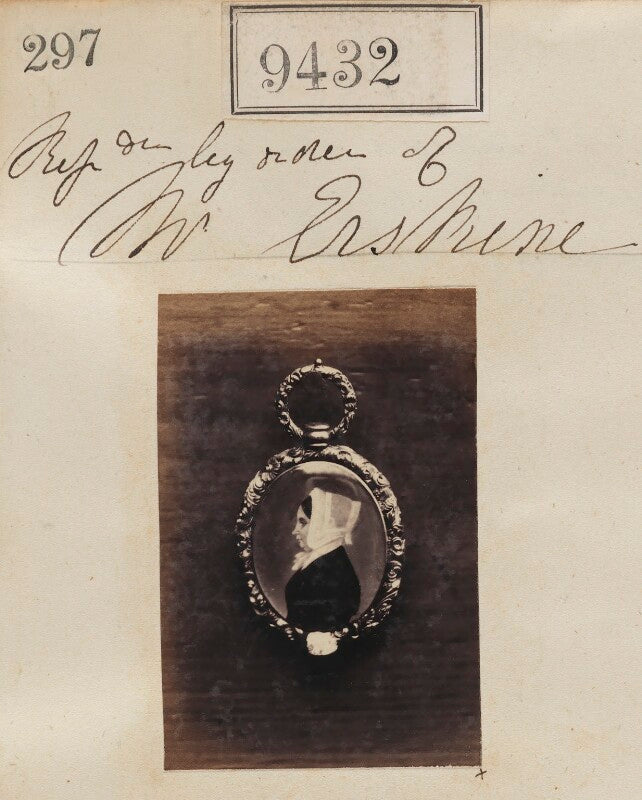 297
9432
Rep dn by order of
Mr Erskine
x